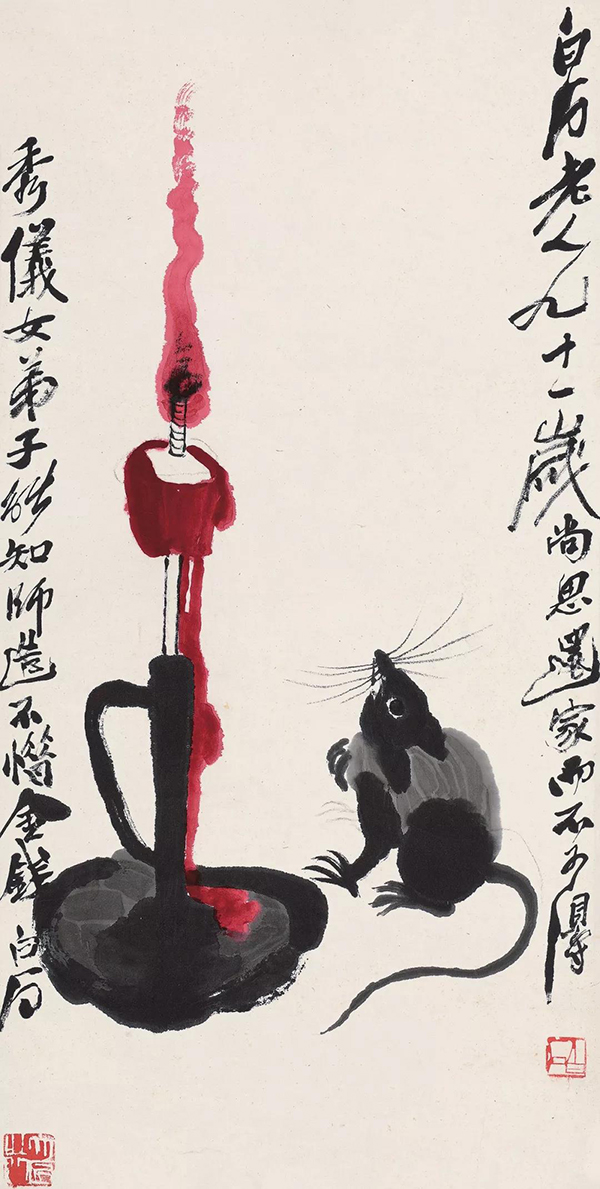 白石老人九十一歲尚思還家而不可得
秀儀女弟子能知師造不惜金錢白石